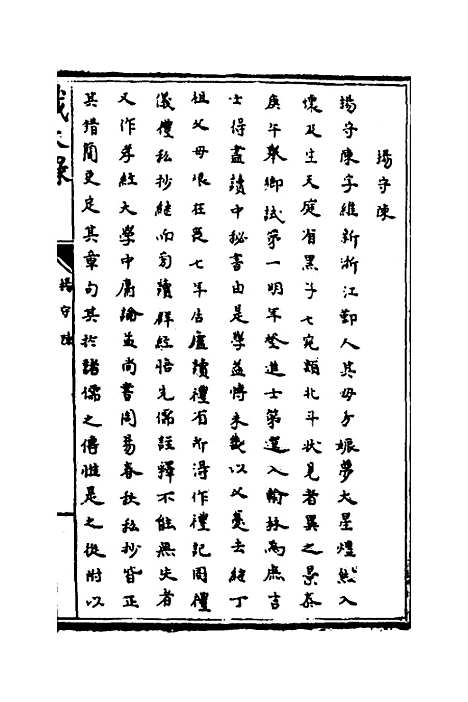 楊守陳
楊守陳字維新浙江鄞人其母方娠夢大星煜然入
懷及生天庭有黑子七宛類北斗狀見者異之景泰
庚午舉鄉試第一明年登進士第選入翰林為庶吉
士得盡讀中秘書由是學益博未幾以父憂去繼丁
祖父母艱在苫七年居廬讀禮有所得作禮記周禮
儀禮私抄繼而旬讀群經悟先儒註釋不能無失者
又作孝經大學中庸論孟尚書周易春秋私抄皆正
其錯簡更定其章句其於諸儒之傳惟是之從附以
楊守陳